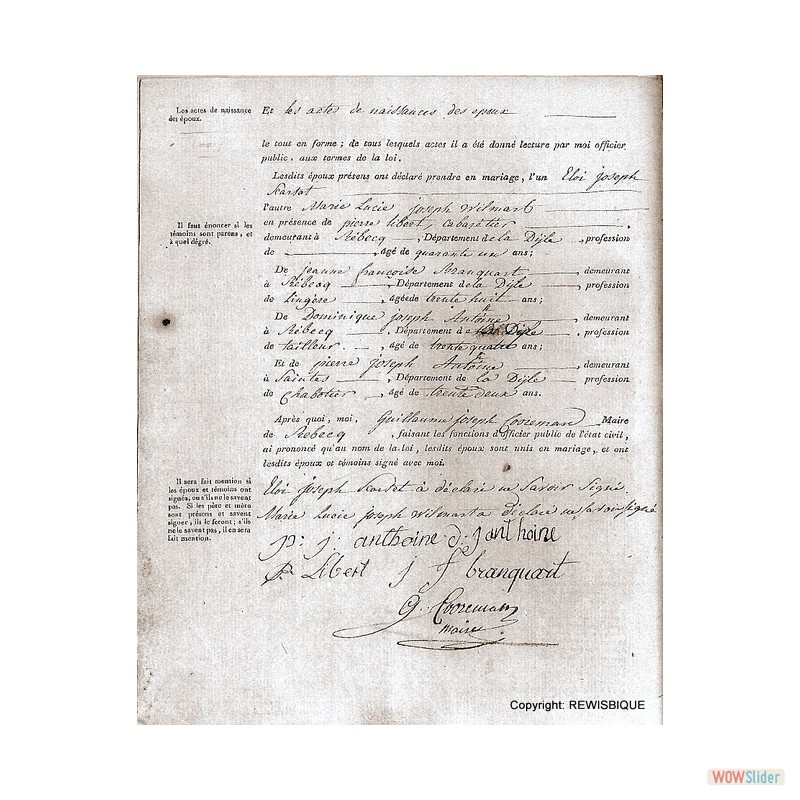 Les actes de naissance
des époux.
Et les actes de naissances des époux
le tout en forme ; de tous lesquels actes il a été donné lecture par moi officier
public, aux termes de la loi.
Lesdits époux présens ont déclaré prendre en mariage, l'un Eloi joseph
l'autre Marie Lucie joseph Wilmart
Il faut énoncer si les
témoins sont parens, et
à quel dégré.
en présence de pierre libert, cabaretier
demeurant à Rébecq, Département de la Dijle, profession
de, agé de quarante un ans;
De jeanne françoise Branquart, demeurant
à Rébecq, Département de la Dijle, profession
de lingère, agée de trente huit ans;
De Dominique joseph Antoine, demeurant
à Rébecq, Département de la Dijle, profession
de tailleur, agé de trente quatre ans;
Et de pierre joseph Antoine, demeurant
à Saintes, Département de la Dijle, profession
de Chabotier, agé de trente deux ans.
Après quoi, moi, Guillaume joseph Cooreman Maire
de Rebecq, faisant les fonctions d'officier public de l'état civil,
ai prononcé qu'au nom de la loi, lesdits époux sont unis en mariage, et ont
lesdits époux et témoins signé avec moi.
Il sera fait mention si
les époux et témoins ont
signés, ou s'ils ne le savent
pas. Si les père et mère
sont présens et savent
signer, ils le feront; s'ils
ne le savent pas, il en sera
fait mention.
Eloi joseph à déclaré ne Savoir Signé.
Marie Lucie joseph Wilmart a déclaré ne Savoir signé
p: j: anthoine d: j anthoine
P. Libert j f branquart
G. Cooreman
maire
Copyright: REWISBIQUE
WOWSlider